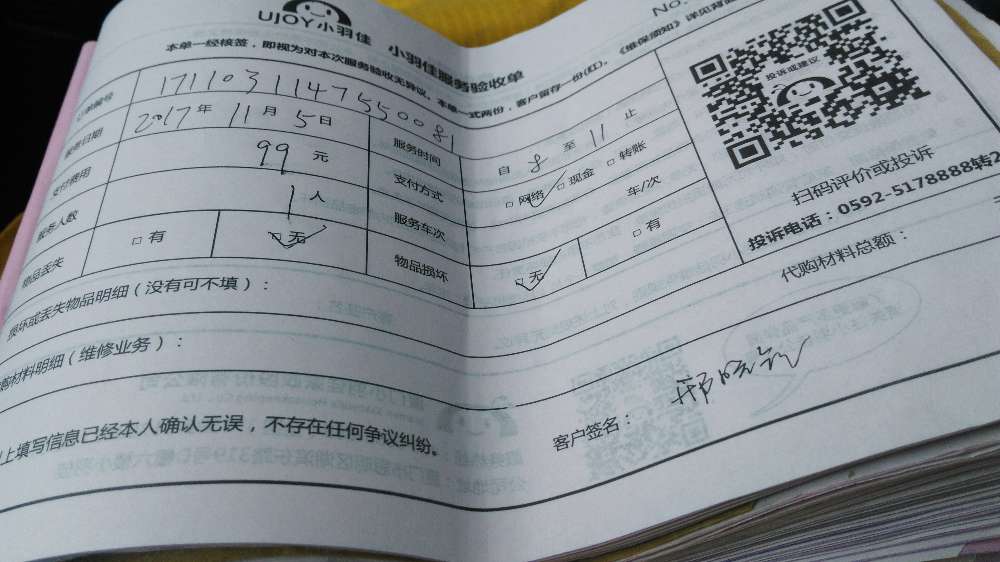 UJOY小羽佳 小羽佳服务验收单
No.
本单一经核签，即视为对本次服务验收无异议。本单一式两份，客户留存一份(红)。《维保须知》详见背面
订单编号 1711031147550081
服务日期 2017年11月5日 服务时间 自8至11止
支付费用 99元 支付方式 □网络 □现金 □转账
服务人数 1人 服务车次 车/次
物品丢失 □有 □无 物品损坏 □无 □有
投诉或建议
扫码评价或投诉
投诉电话：0592-5178888转2
损坏或丢失物品明细（没有可不填）：
代购材料总额：
购材料明细（维修业务）：
上填写信息已经本人确认无误，不存在任何争议纠纷。
客户签名：